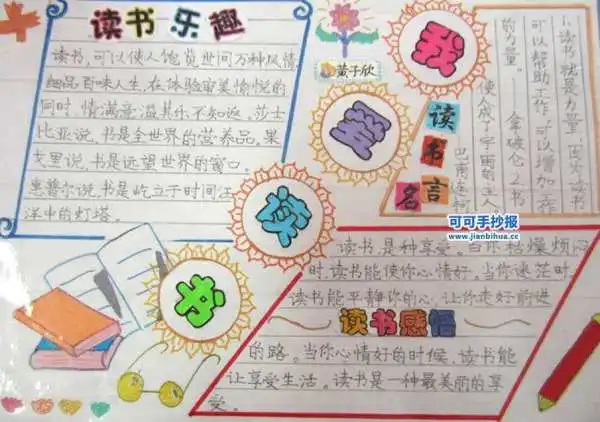 读书乐趣
读书,可以使人饱览世间万种风情
细品百味人生,在体验审美愉悦的
同时,情满意溢其乐不知返。莎士
比亚说,书是全世界的营养品。果
戈里说,书是远望世界的窗口。
惠普尔说,书是屹立于时间汪
洋中的灯塔。
黄子欣
我
爱
读
书
1.读书就是力量,因为读书
可以帮助工作,可以增加工作
的力量。
拿破仑之书
使人成了宇宙的主人
巴甫连柯
读书名言
可可手抄报
www.jianbihua.cc
读书,是种享受。当你枯燥烦闷
时,读书能使你心情好。当你迷茫时
读书能平静你的心,让你走好前进
读书感悟
的路。当你心情好的时候,读书能
让享受生活。读书是一种最美丽的享
受。